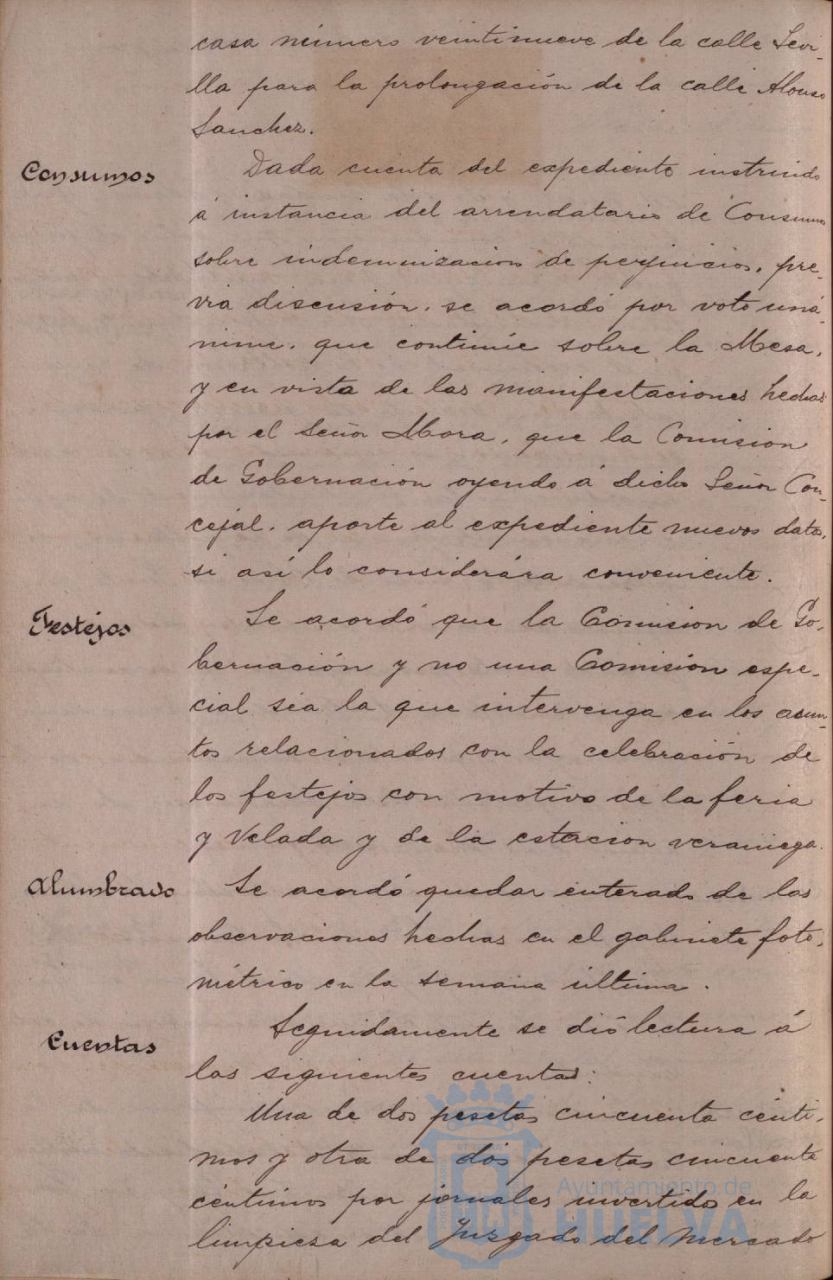 casa número veintinueve de la calle Sevi-
lla para la prolongación de la calle Alonso
Sanchez.
Consumos
Dada cuenta del expediente instruido
á instancia del arrendatario de Consumos
sobre indemnización de perjuicios, pre-
via discusión, se acordó por voto uná-
nime, que continúe sobre la Mesa,
y en vista de las manifestaciones hechas
por el Señor Mora, que la Comision
de Gobernación oyendo á dicho Señor Con-
cejal, aporte al expediente nuevos datos,
si así lo considerára conveniente.
Festejos
Se acordó que la Comision de Go-
bernación y no una Comisión espe-
cial sea la que intervenga en los asun-
tos relacionados con la celebración de
los festejos con motivo de la feria
y Velada y de la estacion veraniega.
Alumbrado
Se acordó quedar enterado de las
observaciones hechas en el gabinete foto-
métrico en la semana última.
Cuentas
Seguidamente se dió lectura á
las siguientes cuentas:
Una de dos pesetas cincuenta cénti-
mos y otra de dos pesetas cincuenta
céntimos por jornales invertidos en la
limpieza del Juzgado del Mercado
Ayuntamiento de
HUELVA